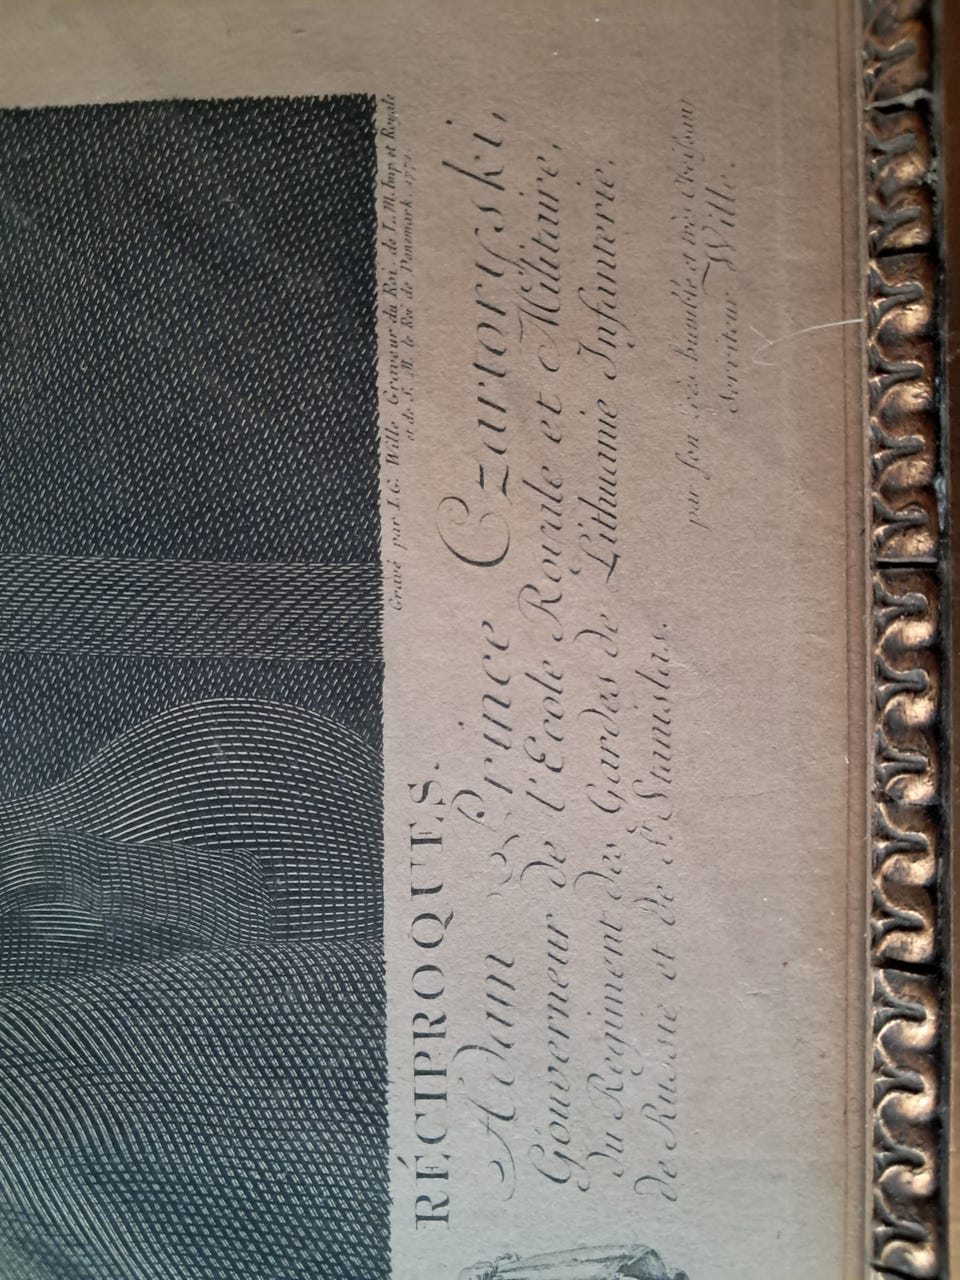 Gravé par I.G. Wille Graveur du Roi, de L.M. Imp. et Royale
et de S. M. le Roi de Danemark. 1771.
RÉCIPROQUES.
Adam Prince Czartoryski,
Gouverneur de l'Ecole Royale et Militaire,
du Regiment des Gardes de Lithuanie Infanterie,
de Russie et de St. Stanislas.
par son très humble et très obeissant
Serviteur Wille.